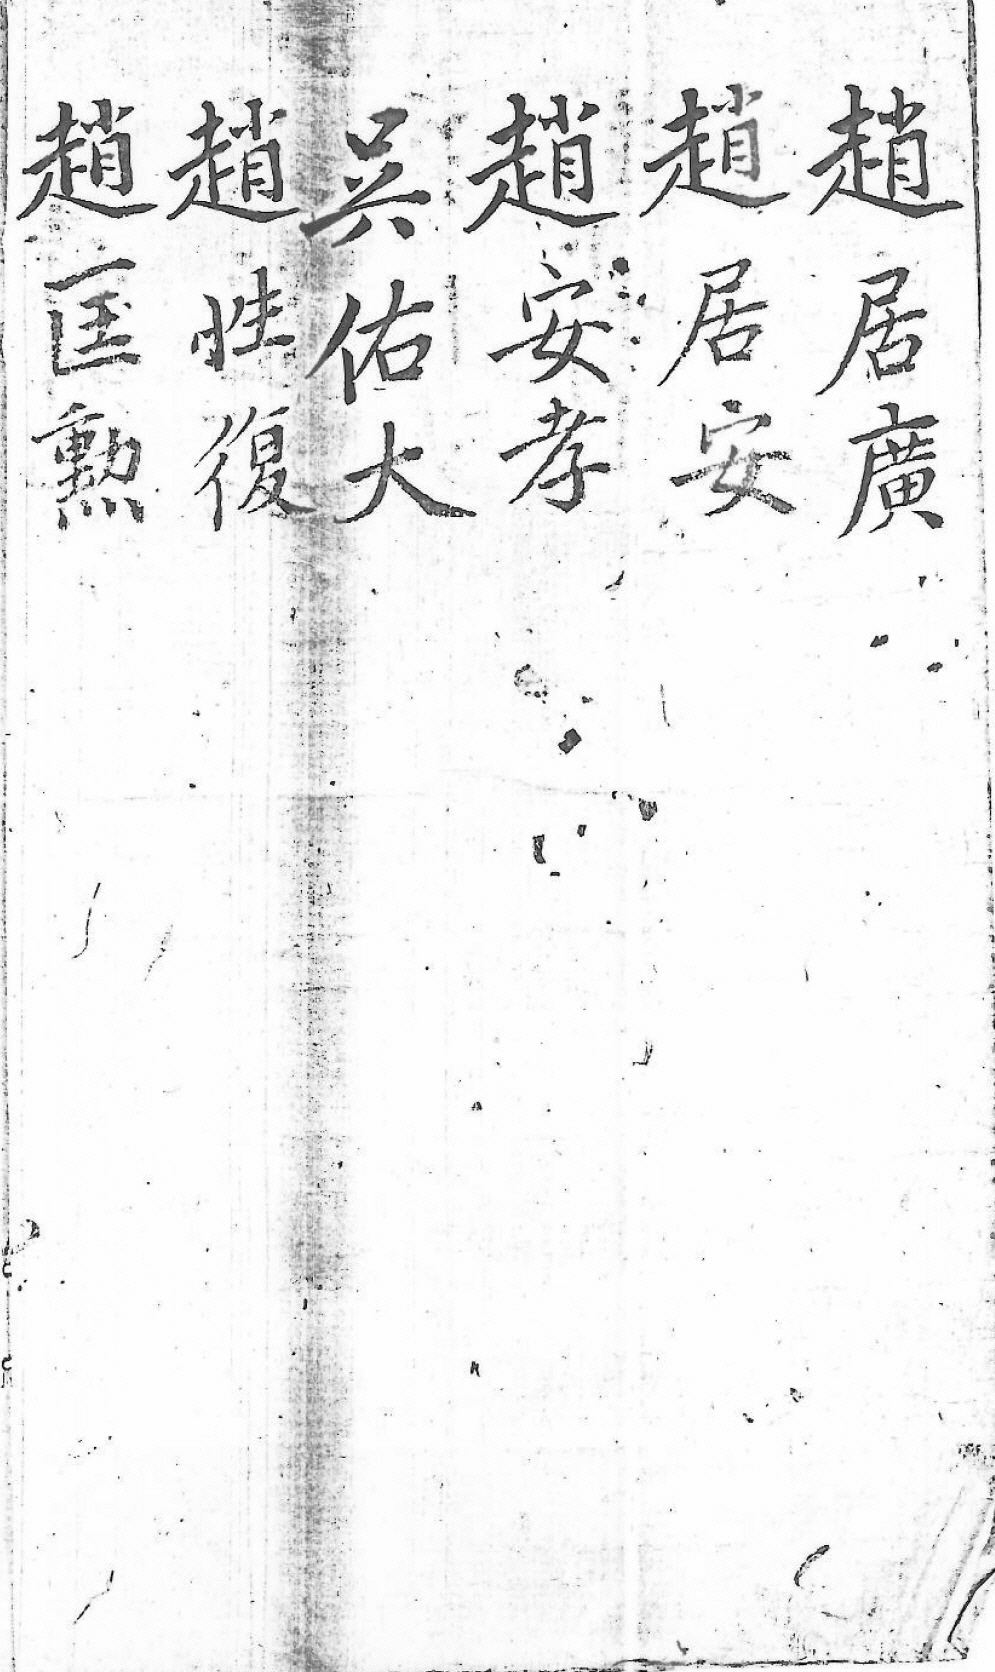 趙居廣
趙居安
趙安孝
吳佑大
趙性復
趙匡勲